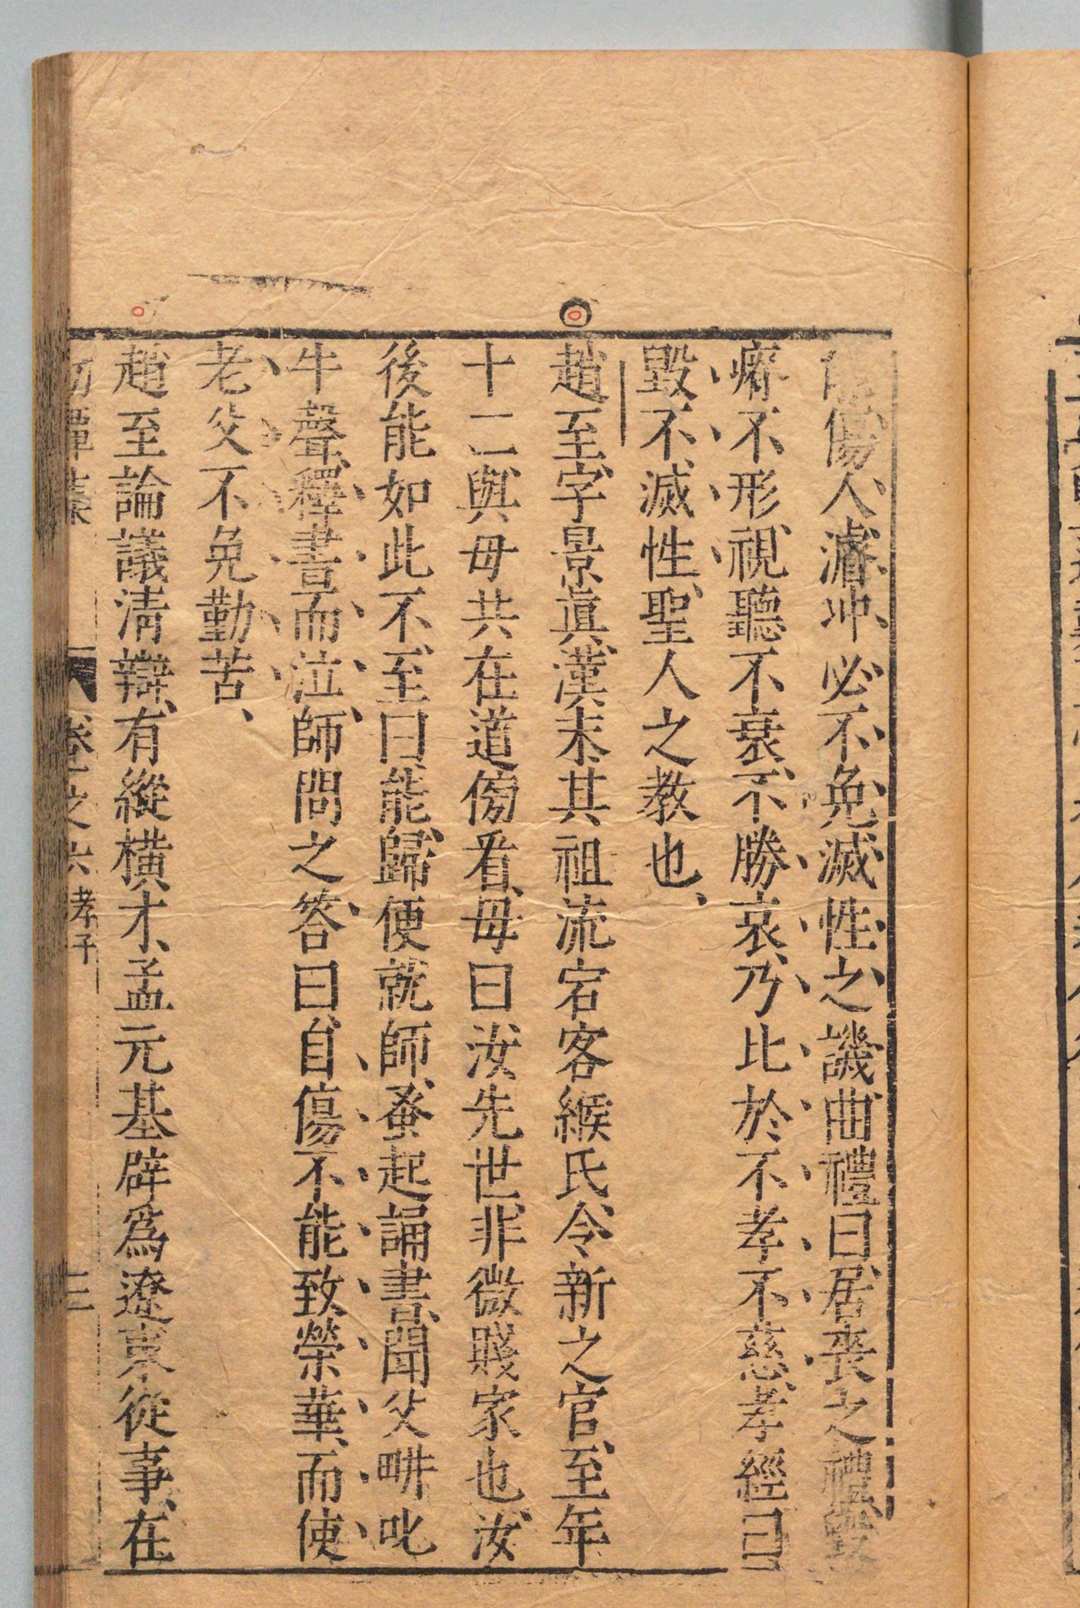 傷人、濬冲必不免滅性之譏、曲禮曰、居喪之禮、毀
瘠不形、視聽不衰、不勝喪、乃比於不孝不慈、孝經曰
毀不滅性、聖人之教也、
趙至、字景眞、漢末、其祖流宕客緱氏、令新之官、至年
十二、與母共在道傍看、母曰、汝先世非微賤家也、汝
後能如此不、至曰、能、歸便就師、蚤起誦書、聞父耕叱
牛聲、釋書而泣、師問之、答曰、自傷不能致榮華、而使
老父不免勤苦、
趙至論議淸辯、有縱橫才、孟元基辟爲遼東從事、在
卷之六 孝子 三